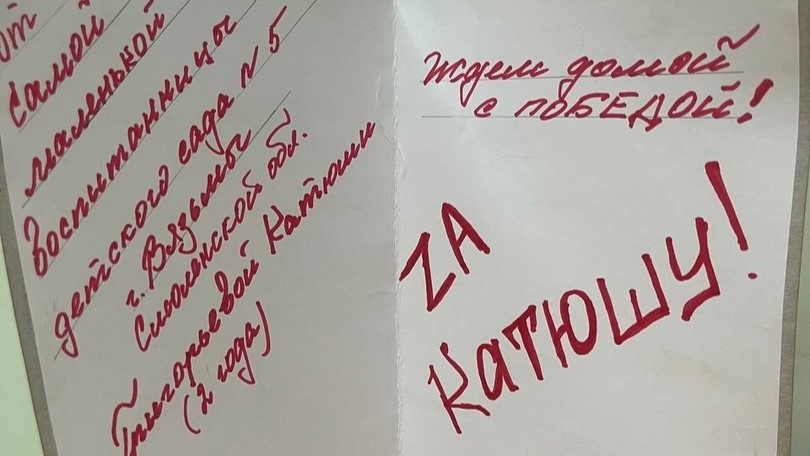 от
самой
маленькой
воспитанницы
детского сада N 5
г. Вязьмы
Смоленской обл.
Григорьевой Катюши
(2 года)
Ждем домой
с ПОБЕДОЙ!
ZА
КаТЮШУ!